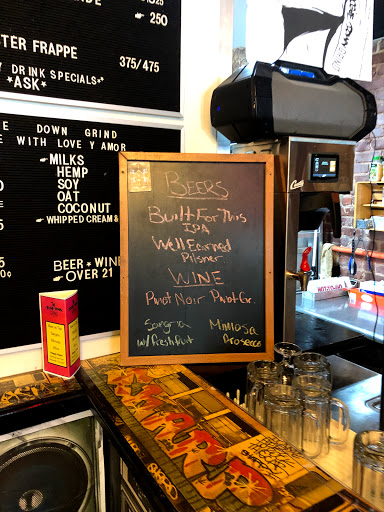 250
STER FRAPPE
375/475
DRINK SPECIALS*
*ASK*
E DOWN GRIND
WITH LOVE Y AMOR
MILKS
HEMP
SOY
OAT
COCONUT
WHIPPED CREAM &
BEER • WIN
OVER 21
BEERS
Built For This
IPA
Well Earned
Pilsner
WINE
Pinot Noir Pinot Gr.
Sangria
w/fresh fruit
Mimosa
Prosecco